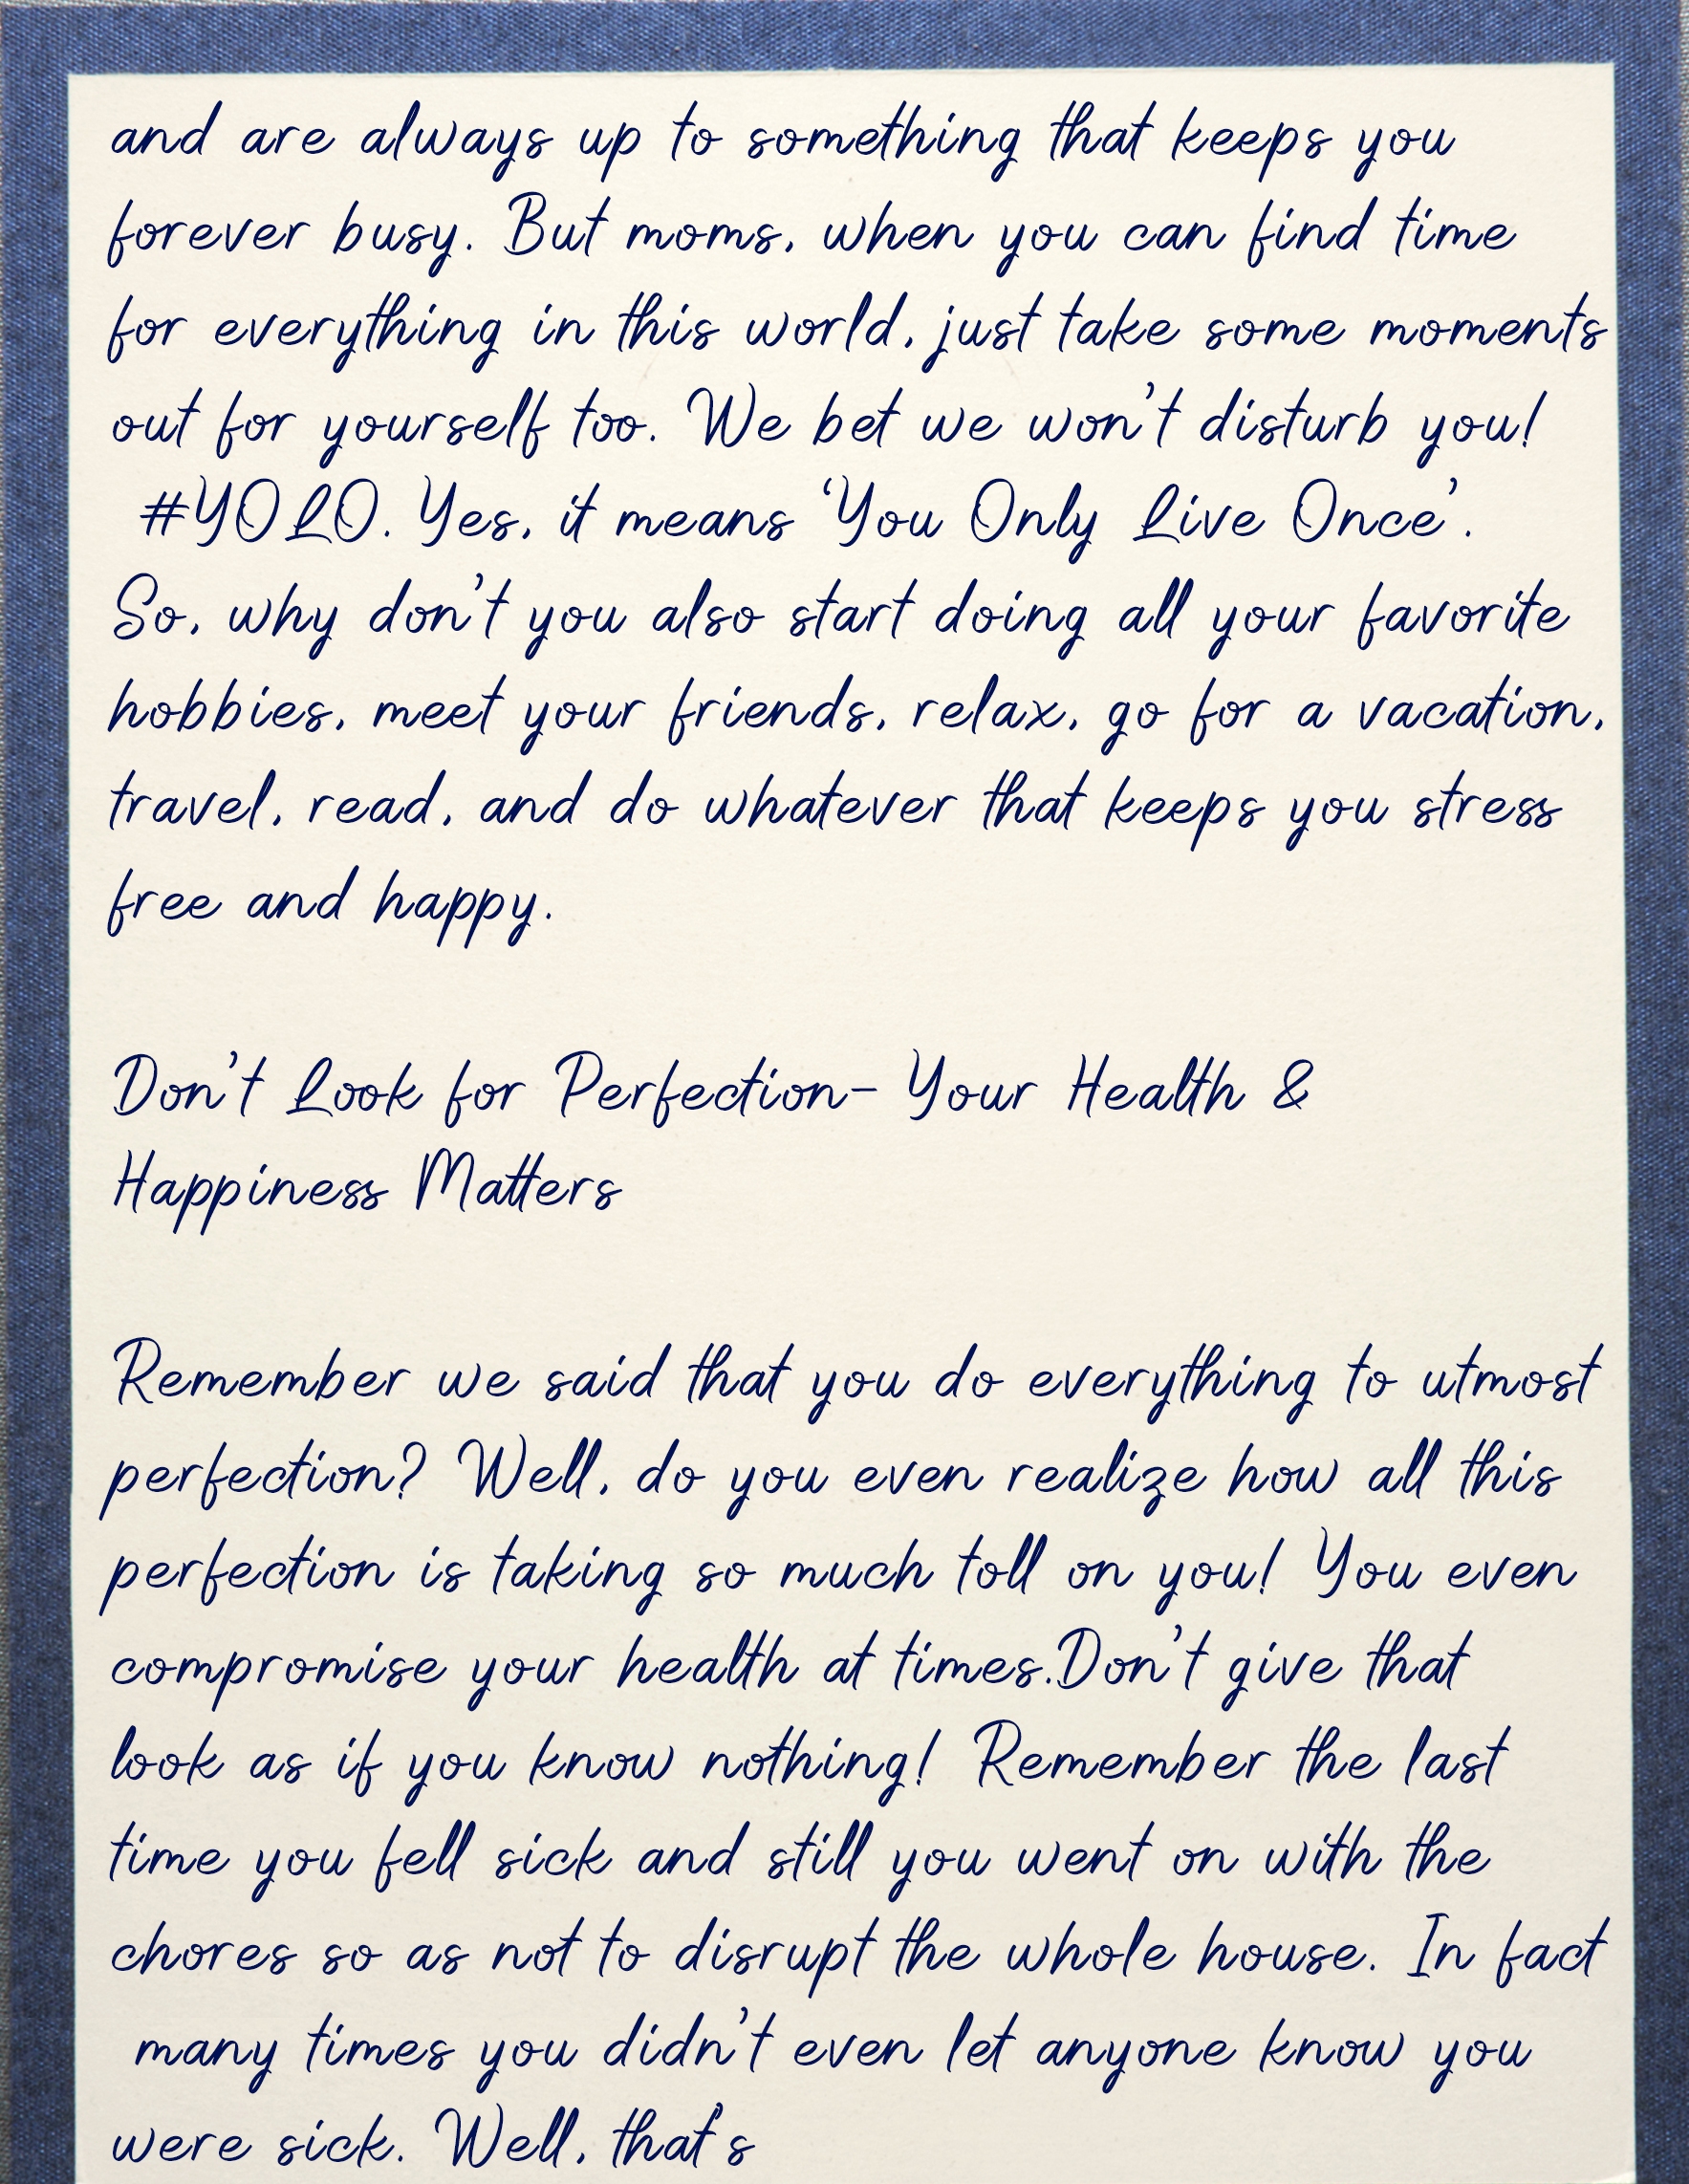 and are always up to something that keeps you
forever busy. But moms, when you can find time
for everything in this world, just take some moments
out for yourself too. We bet we won't disturb you!
#YOLO. Yes, it means ‘You Only Live Once’.
So, why don't you also start doing all your favorite
hobbies, meet your friends, relax, go for a vacation,
travel, read, and do whatever that keeps you stress
free and happy.
Don't Look for Perfection- Your Health &
Happiness Matters
Remember we said that you do everything to utmost
perfection? Well, do you even realize how all this
perfection is taking so much toll on you! You even
compromise your health at times.Don't give that
look as if you know nothing! Remember the last
time you fell sick and still you went on with the
chores so as not to disrupt the whole house. In fact
many times you didn't even let anyone know you
were sick. Well, that's